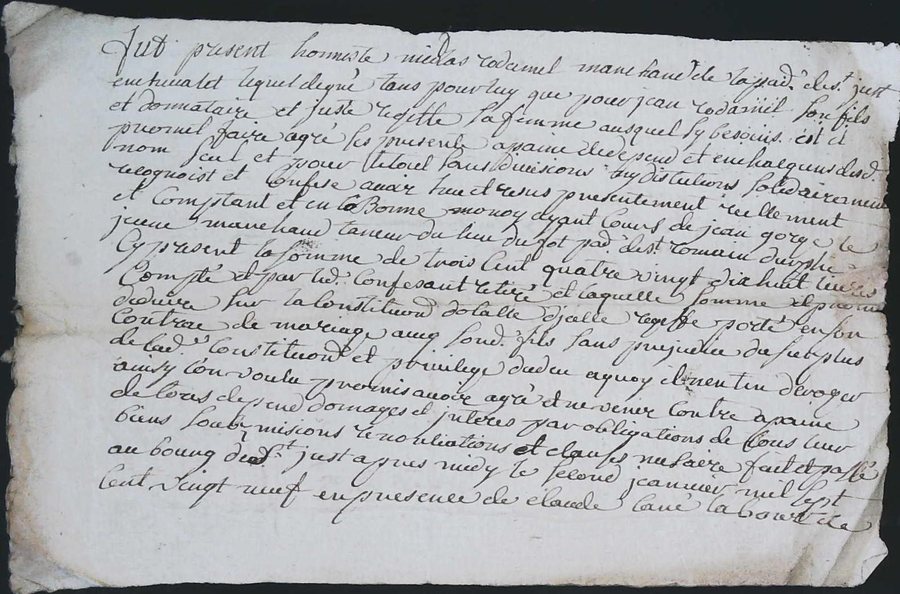 fut present honneste nicolas rodamel marchand de la pad.e de st just
en chevalet lequel de gré tans pour luy que pour jean rodamel son fils
et donnataire et juste reiffe sa femme ausquel sy besoins est il
promet faire agré les presente a paine de depend et en chaqquns desd.
nom seul et pour le tout sans divicions ny distutions solidairement
recognoist et confese avoir heu et resus presentement reellement
et comptant et en bonne monoy ayant cours de jean gorge le
jeune marchand taneur du lieu du got pad. de st romain durphe
cy present la somme de trois cent quatre vingt dix huit livres
compté et par led. confesant retiré et laquelle somme il promet
deduire sur la constitution dotalle d'icelle reiffe porté en son
contrac de mariage avec sond. fils sans prejudice du surplus
de lad. constitution et privilege dudeu a quoy il n'entend deroger
ainsy l'on voulu promis avoir agré et ne venir contre a paine
de tous depend domages et interes par obligations de tous leur
biens soubmisions renonciations et clauses nesaire fait et passé
au bourg dud. st just apres midy le second janvier mil sept
cent vingt neuf en presence de claude lavé laboureur de